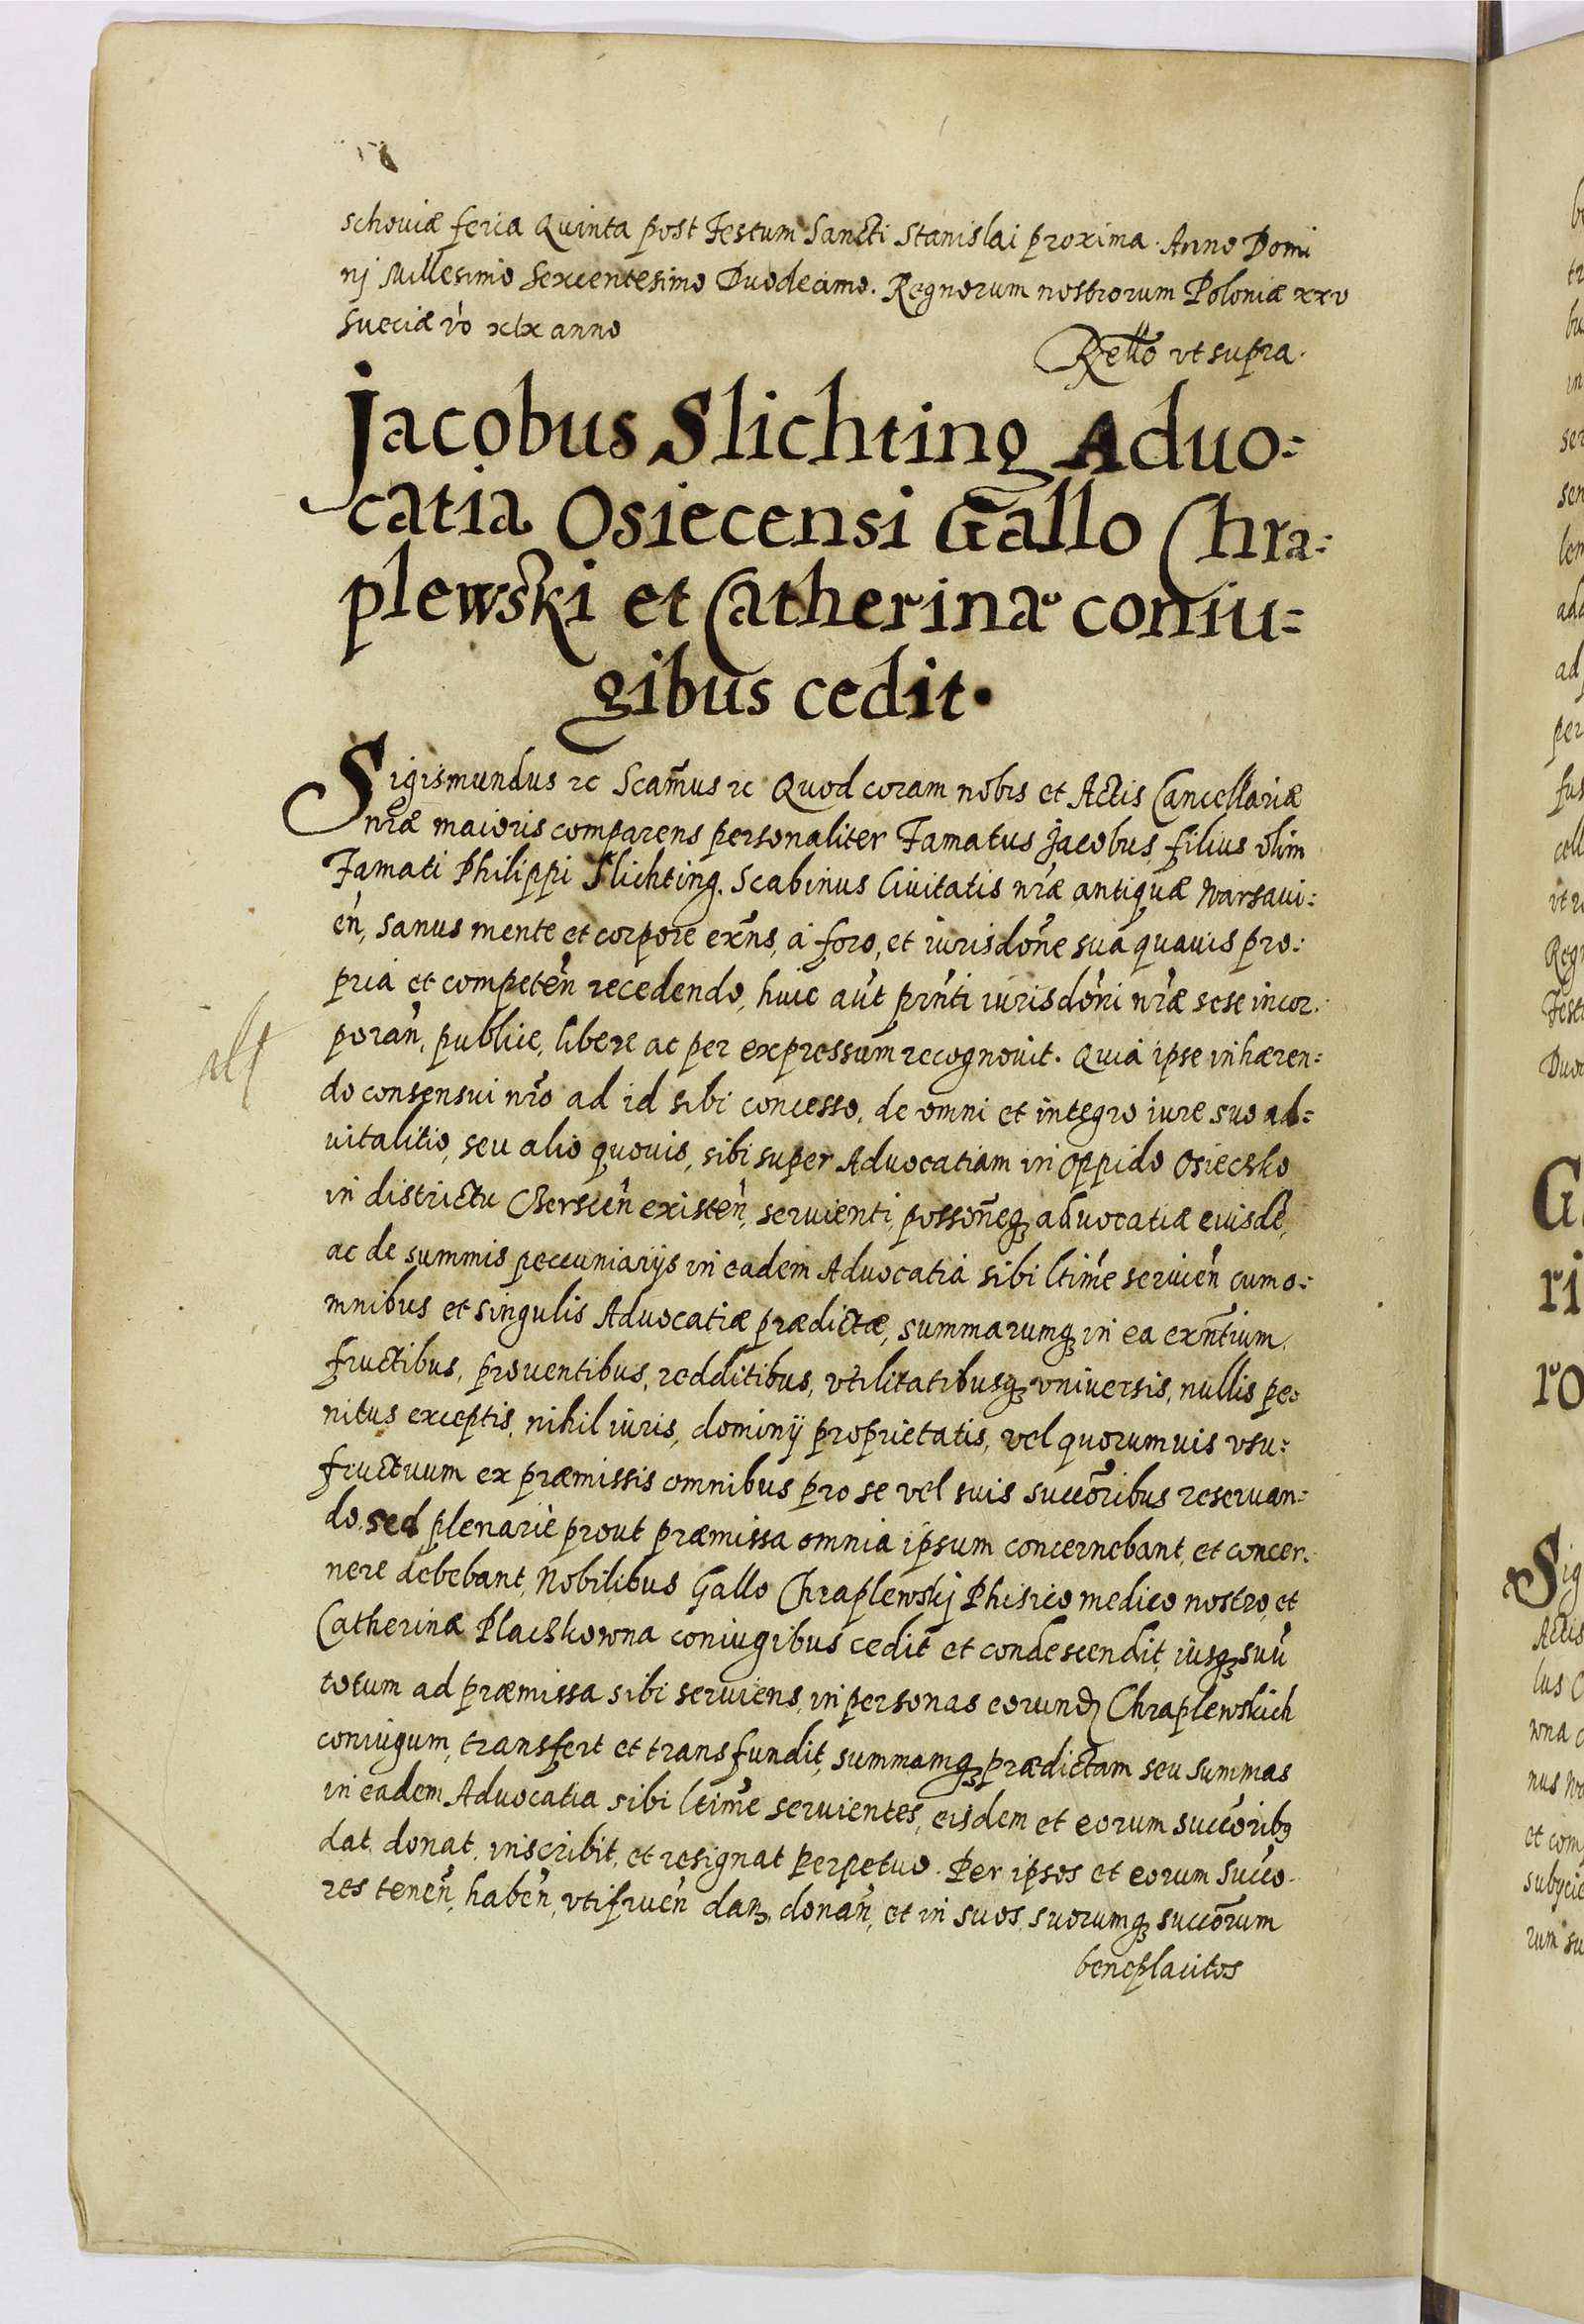 schouiæ feria Quinta post Festum Sancti Stanislai proxima. Anno Domi
nj Millesimo Sexcentesimo Duodecimo. Regnorum nostrorum Poloniæ xxv
Sueciæ vo xix anno
Rello vt supra.
Jacobus Slichting Aduo=
catia Osiecensi Gallo Chra=
plewski et Catherinæ coniu=
gibus cedit.
Sigismundus rc Scamus rc Quod coram nobis et Actis Cancellariæ
nræ maioris comparens personaliter Famatus Jacobus filius olim
Famati Philippi Slichting. Scabinus Ciuitatis nræ antiquæ Warsaui=
en, sanus mente et corpore exns, a foro, et iurisdone sua quauis pro=
pria et competen recedendo, huic aut prnti iurisdoni nræ sese incor=
poran, publice, libere ac per expressum recognouit. Quia ipse inhæren=
do consensui nro ad id sibi concesso, de omni et integro iure suo ad=
uitalitio, seu alio quouis, sibi super Aduocatiam in oppido Osieczko
in districtu Cerscen existen, seruienti, possoneq aduocatiæ eiusde,
ac de summis peccuniarijs in eadem Aduocatia sibi ltime seruien cum o=
mnibus et singulis Aduocatiæ prædictæ, summarumq in ea exntium
fructibus, prouentibus, redditibus, vtilitatibusq vniuersis, nullis pe=
nitus exceptis, nihil iuris, dominij proprietatis, vel quorumuis vsu=
fructuum ex præmissis omnibus pro se vel suis succoribus reseruan=
do, sed plenarie prout præmissa omnia ipsum concernebant, et concer=
nere debebant, Nobilibus Gallo Chraplewskj Phisico medico nostro, et
Catherinæ Placzkowna coniugibus cedit et condescendit, iusq suu
totum ad præmissa sibi seruiens, in personas eorund Chraplewskich
coniugum, transfert et transfundit, summamq prædictam seu summas
in eadem Aduocatia sibi ltime seruientes, eisdem et eorum succorib9
dat, donat, inscribit, et resignat perpetuo. Per ipsos et eorum succo=
res tenen, haben, vtifruen dan, donan, et in suos, suorumq succorum
beneplacitos